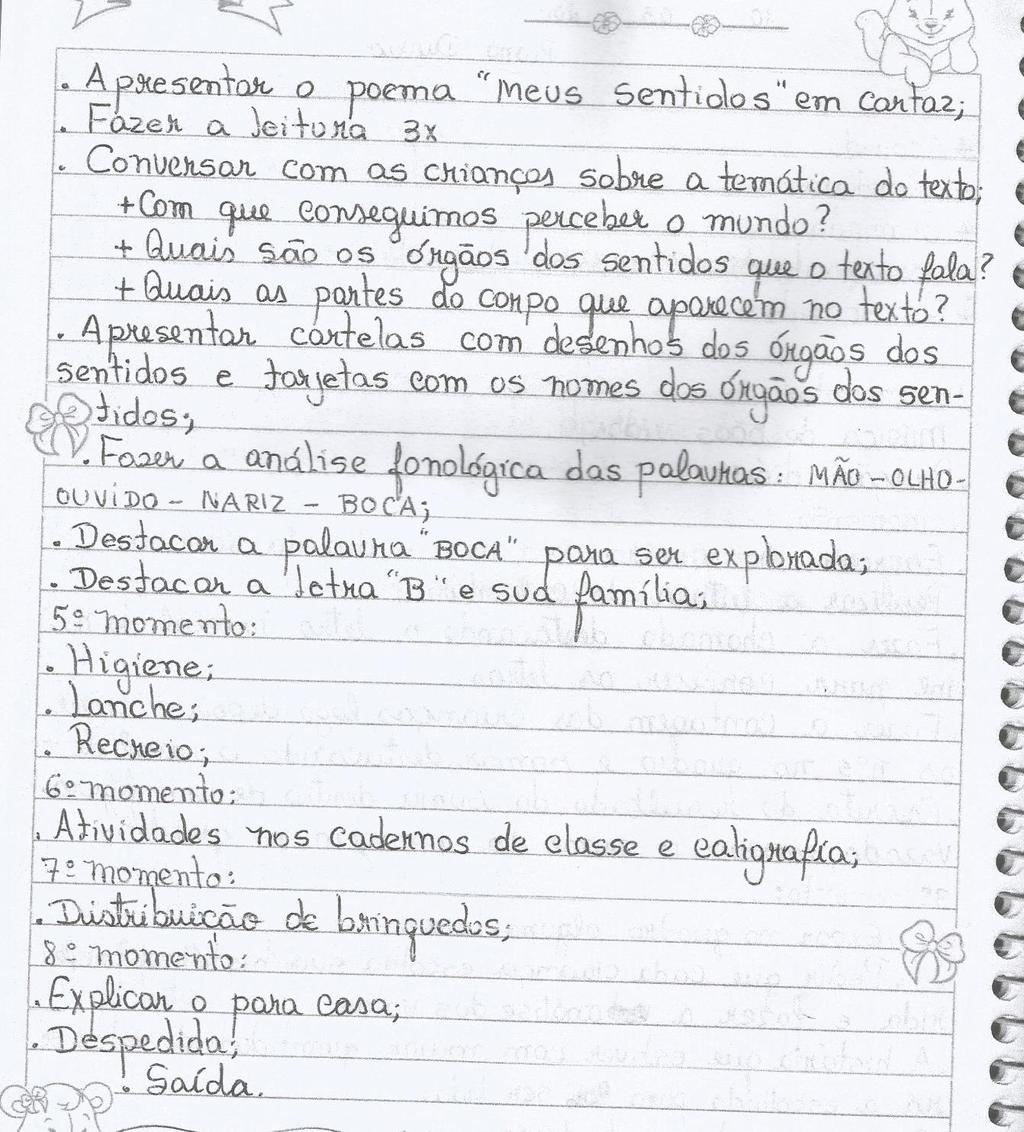 . Apresentar o poema "Meus sentidos" em cartaz;
. Fazer a leitura 3x
. Conversar com as crianças sobre a temática do texto;
+ Com que conseguimos perceber o mundo?
+ Quais são os órgãos dos sentidos que o texto fala?
+ Quais as partes do corpo que aparecem no texto?
. Apresentar cartelas com desenhos dos órgãos dos
sentidos e tarjetas com os nomes dos órgãos dos sen-
tidos;
. Fazer a análise fonológica das palavras: MÃO - OLHO -
OUVIDO - NARIZ - BOCA;
. Destacar a palavra "BOCA" para ser explorada;
. Destacar a letra "B" e sua família;
5º momento:
. Higiene;
. Lanche;
. Recreio;
6º momento:
. Atividades nos cadernos de classe e caligrafia;
7º momento:
. Distribuição de brinquedos;
8º momento:
. Explicar o para casa;
. Despedida;
. Saída.